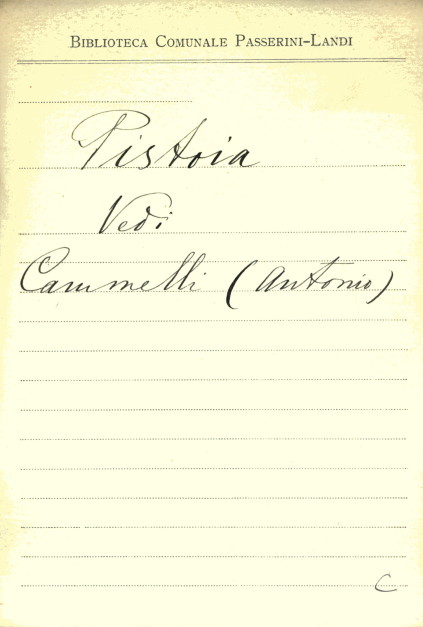 BIBLIOTECA COMUNALE PASSERINI-LANDI
Pistoia
Vedi
Cammelli (Antonio)
C